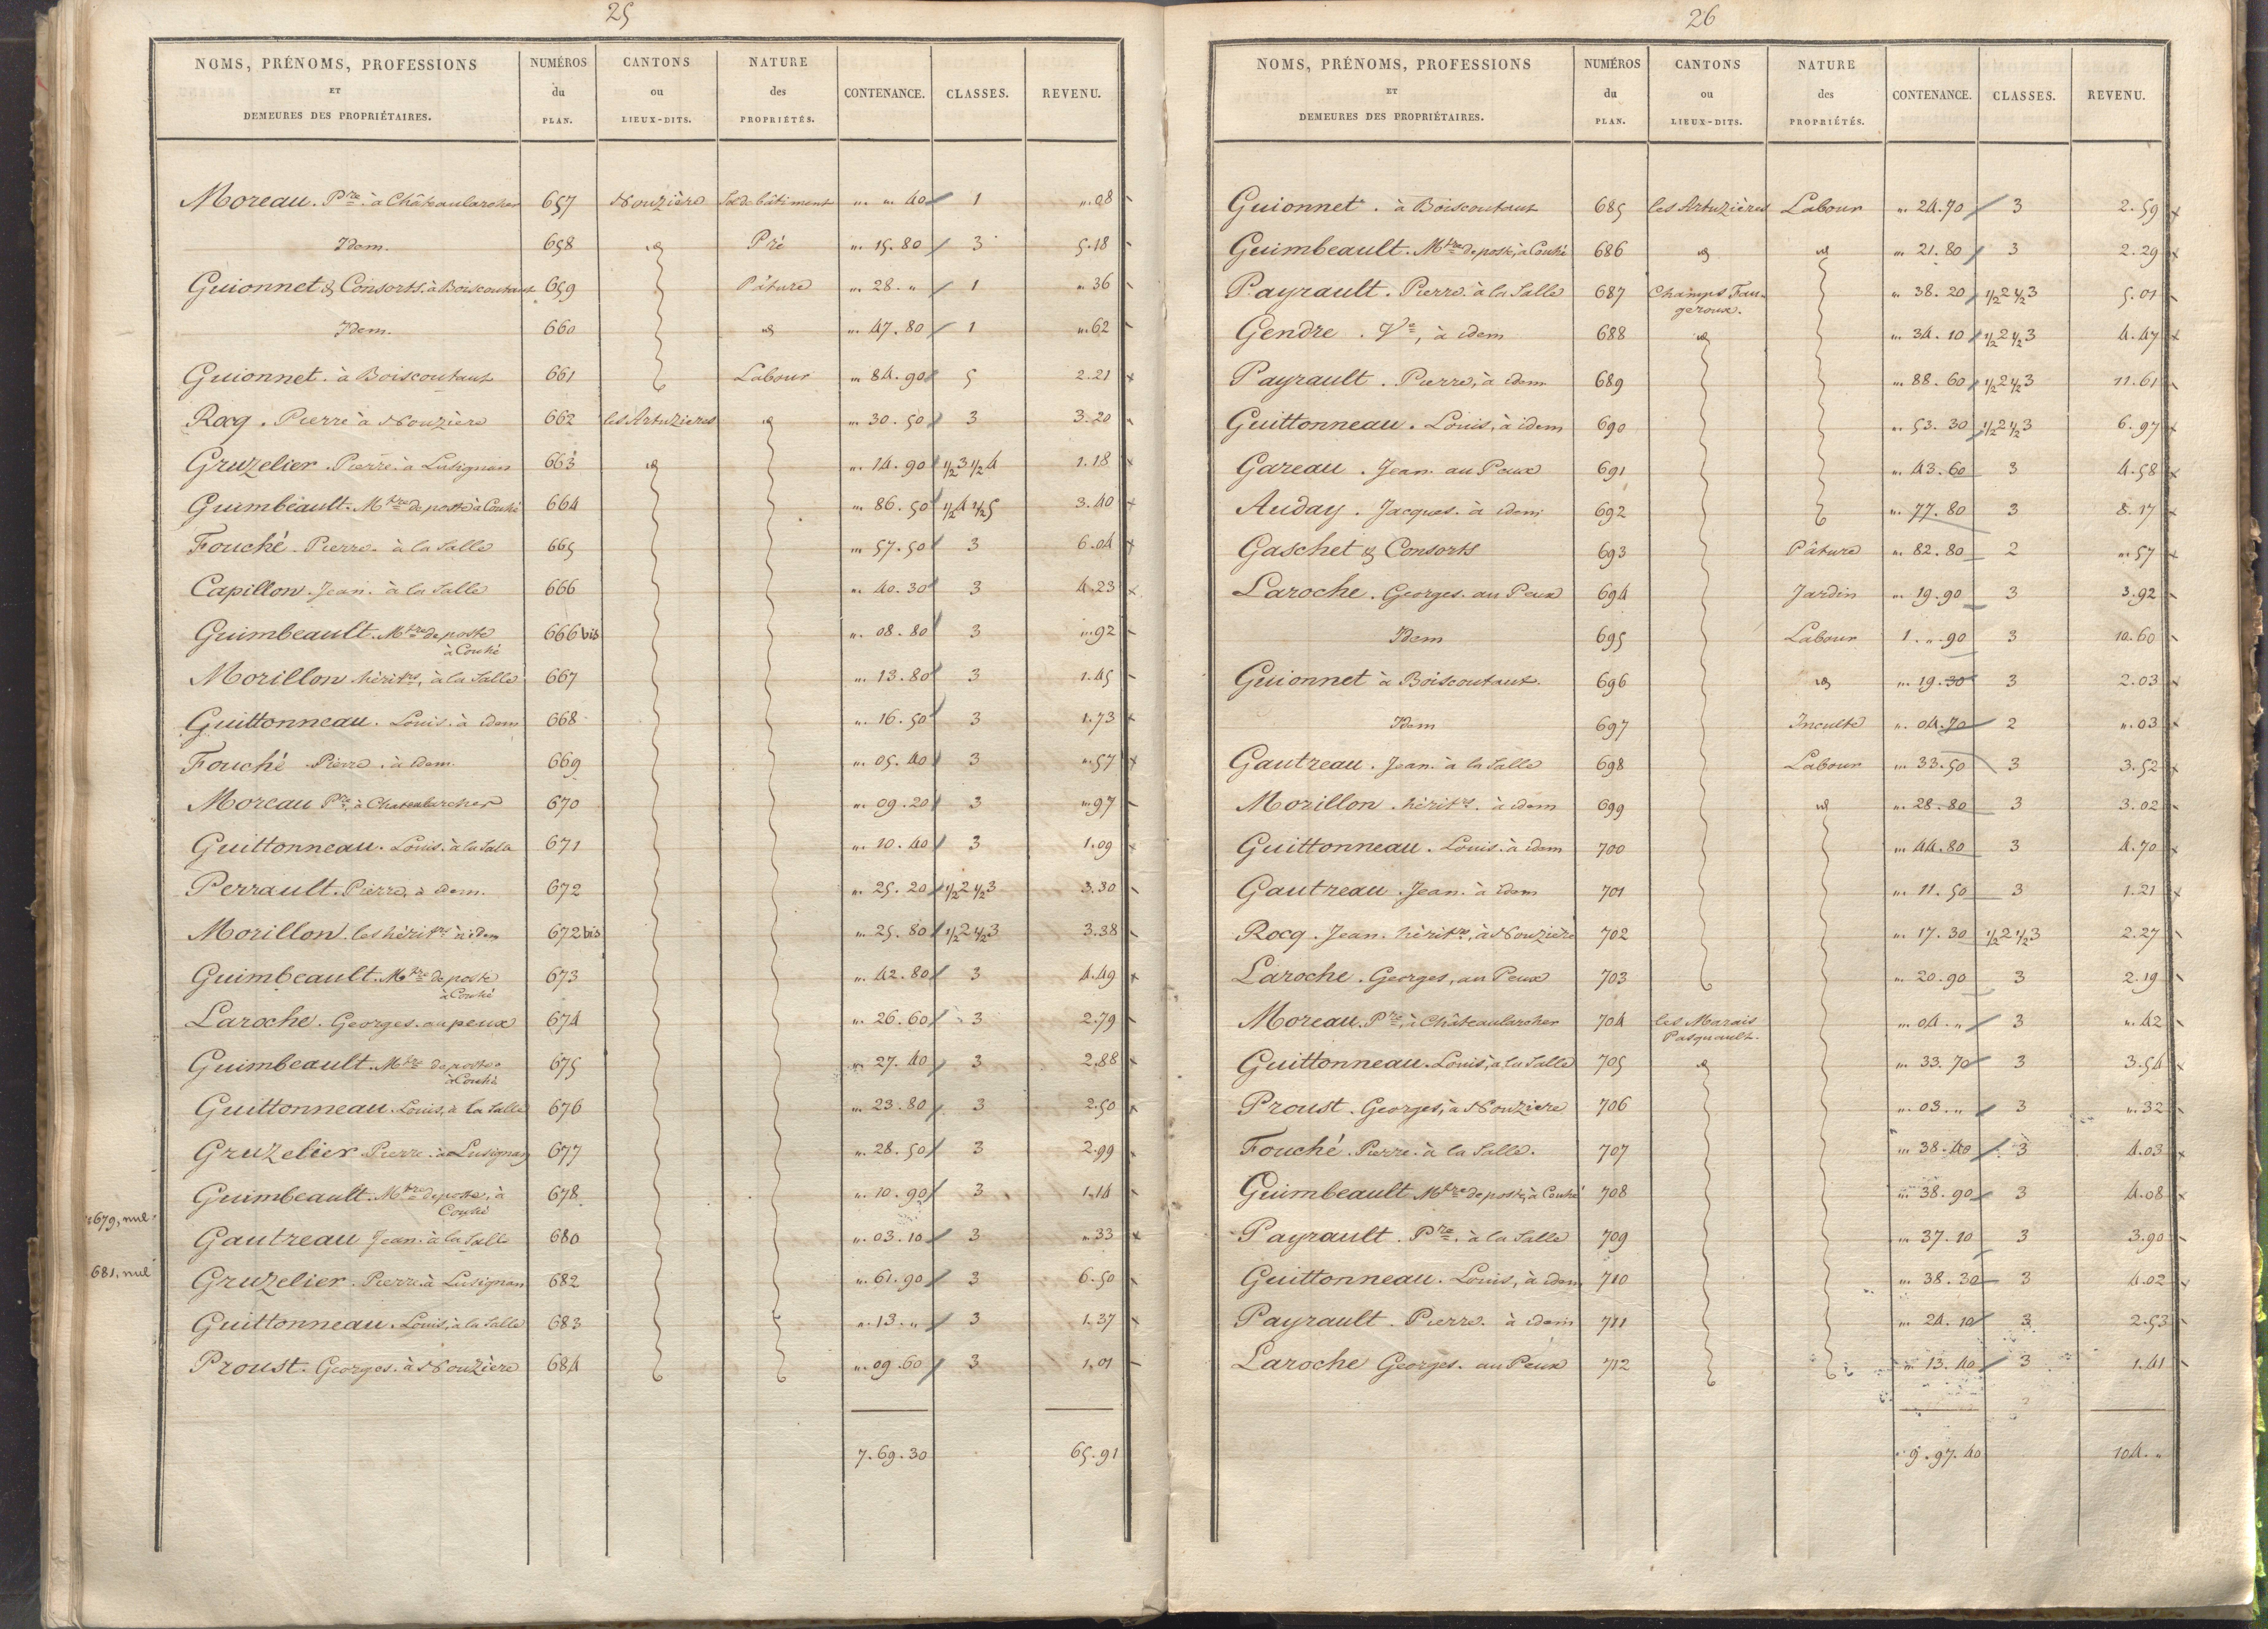 25
NOMS, PRÉNOMS, PROFESSIONS ET DEMEURES DES PROPRIÉTAIRES. NUMÉROS du PLAN. CANTONS ou LIEUX-DITS. NATURE des PROPRIÉTÉS. CONTENANCE. CLASSES. REVENU.
Moreau. Pre. à Châteaularcher 657 Nouzière Sol de bâtiment " " 40 1 ".08
Idem. 658 id Pré ". 15. 80 3 5.18
Guionnet & Consorts. à Boiscoutant 659 Pâture ". 28. " 1 ". 36
Idem. 660 id ". 47. 80 1 ".62
Guionnet. à Boiscoutant 661 Labour ". 84. 90 5 2.21
Rocq. Pierre à Nouzière 662 les Artuzieres id ". 30. 50 3 3.20
Gruzelier. Pierre. à Lusignan 663 id ". 14. 90 1/2 3 1/2 4 1.18
Guimbeault. Mtre de poste à Couhé 664 ". 86. 50 1/2 4 1/2 5 3.40
Fouché. Pierre. à la Salle 665 ". 57. 50 3 6.04
Capillon. Jean. à la Salle 666 ". 40. 30 3 4.23
Guimbeault. Mtre de poste 666 bis ". 08. 80 3 ".92
à Couhé
Morillon hérit.rs, à la Salle 667 ". 13. 80 3 1.45
Guittonneau. Louis. à idem 668 ". 16. 50 3 1.73
Fouché Pierre. à idem. 669 ". 05. 40 3 ".57
Moreau Pre à Chateaularcher 670 ". 09. 20 3 ".97
Guittonneau. Louis. à la Salle 671 ". 10. 40 3 1.09
Perrault. Pierre, à idem. 672 ". 25. 20 1/2 2 1/2 3 3.30
Morillon. les hérit.rs à idem 672 bis ". 25. 80 1/2 2 1/2 3 3.38
Guimbeault. Mtre de poste 673 ". 42. 80 3 4.49
à Couhé
Laroche. Georges. au peux 674 ". 26. 60 3 2.79
Guimbeault. Mtre de poste 675 ". 27. 40 3 2.88
à Couhé
Guittonneau. Louis, à la Salle 676 ". 23. 80 3 2.50
Gruzelier. Pierre. à Lusignan 677 ". 28. 50 3 2.99
Guimbeault. Mtre de poste, à 678 ". 10. 90 3 1.14
Couhé
679, nul
Gautreau Jean. à la Salle 680 ". 03. 10 3 ".33
681, nul
Gruzelier. Pierre à Lusignan 682 ". 61. 90 3 6.50
Guittonneau. Louis, à la Salle 683 ". 13. " 3 1.37
Proust. Georges. à Nouzière 684 ". 09. 60 3 1.01
7. 69. 30 65.91
26
NOMS, PRÉNOMS, PROFESSIONS ET DEMEURES DES PROPRIÉTAIRES. NUMÉROS du PLAN. CANTONS ou LIEUX-DITS. NATURE des PROPRIÉTÉS. CONTENANCE. CLASSES. REVENU.
Guionnet. à Boiscoutant 685 les Artuzières Labour ". 24. 70 3 2.59
Guimbeault. Mtre de poste, à Couhé 686 id id ". 21. 80 3 2.29
Payrault. Pierre. à la Salle 687 Champs Fau- ". 38. 20 1/2 2 1/2 3 5.01
geroux.
Gendre. Ve, à idem 688 id ". 34. 10 1/2 2 1/2 3 4.47
Payrault. Pierre, à idem 689 ". 88. 60 1/2 2 1/2 3 11.61
Guittonneau. Louis, à idem 690 ". 53. 30 1/2 2 1/2 3 6.97
Gareau. Jean. au Peux 691 ". 43. 60 3 4.58
Auday. Jacques. à idem 692 ". 77. 80 3 8.17
Gaschet & Consorts 693 Pâture ". 82. 80 2 ".57
Laroche. Georges. au Peux 694 Jardin ". 19. 90 3 3.92
Idem 695 Labour 1. ". 90 3 10.60
Guionnet à Boiscoutant. 696 id ". 19. 30 3 2.03
Idem 697 Inculte ". 04. 70 2 ".03
Gautreau. Jean. à la Salle 698 Labour ". 33. 50 3 3.52
Morillon. hérit.rs. à idem 699 id ". 28. 80 3 3.02
Guittonneau. Louis. à idem 700 ". 44. 80 3 4.70
Gautreau. Jean. à idem 701 ". 11. 50 3 1.21
Rocq. Jean. hérit.rs, à Nouziere 702 ". 17. 30 1/2 2 1/2 3 2.27
Laroche. Georges, au Peux 703 ". 20. 90 3 2.19
Moreau. Pre, à Châteaularcher 704 les Marais ". 04. " 3 ".42
Pasquault.
Guittonneau. Louis, à la Salle 705 id ". 33. 70 3 3.54
Proust. Georges, à Nouziere 706 ". 03. " 3 ".32
Fouché. Pierre. à la Salle. 707 ". 38. 40 3 4.03
Guimbeault Mtre de poste, à Couhé 708 ". 38. 90 3 4.08
Payrault. Pre, à la Salle 709 ". 37. 10 3 3.90
Guittonneau. Louis, à idem 710 ". 38. 30 3 4.02
Payrault. Pierre. à idem 711 ". 24. 10 3 2.53
Laroche Georges. au Peux 712 ". 13. 40 3 1.41
9. 97. 40 104. "